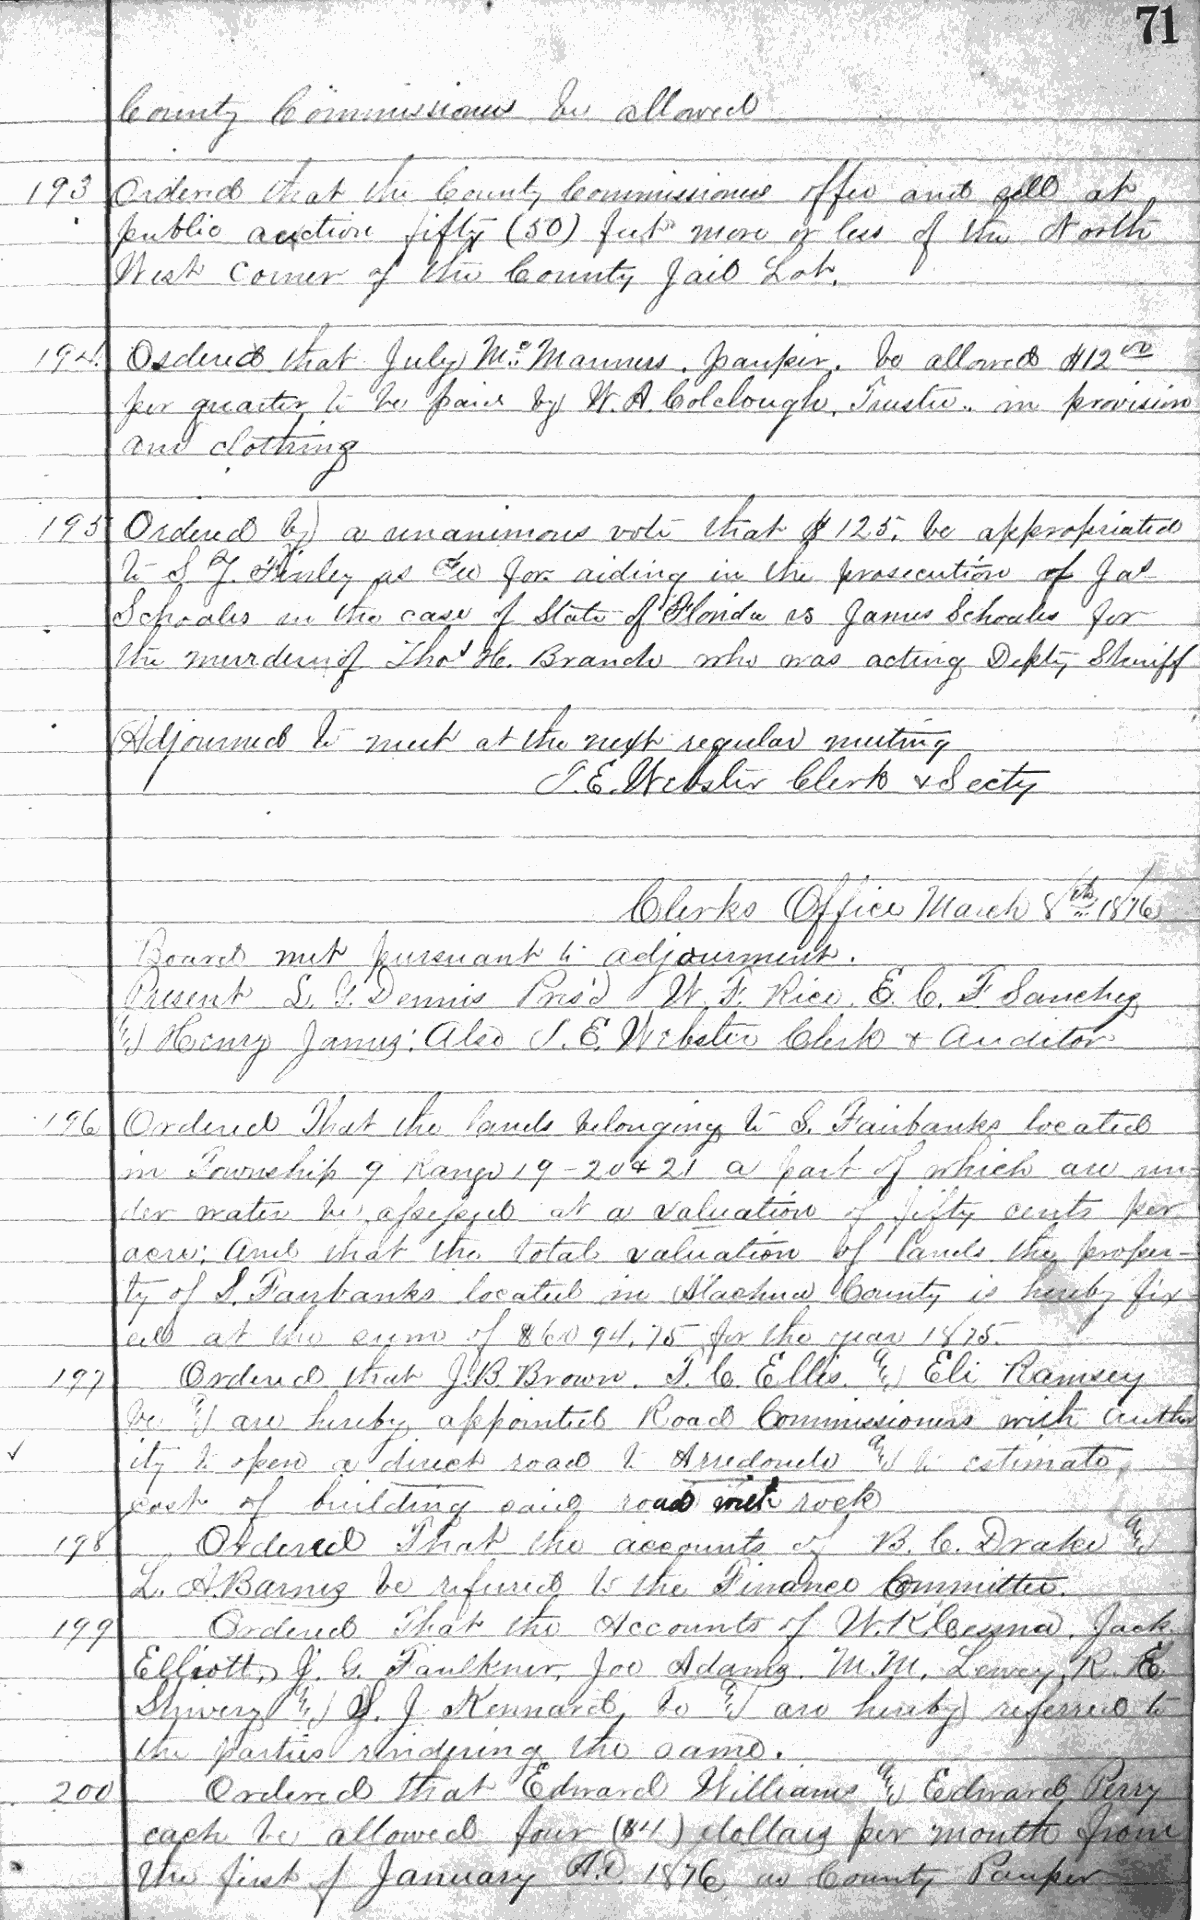 71
County Commissioners be allowed
193 Ordered that the County Commissioners offer and sell at
public auction fifty (50) feet more or less of the North
West Corner of the County Jail Lot.
194. Ordered that July Mc Manness, pauper, be allowed $12 00
per quarter to be paid by W. A. Colclough, Trustee, in provision
and clothing
195 Ordered by a unanimous vote that $125. be appropriated
to S. Y. Finley as Fee for aiding in the prosecution of Jas
Schoales in the case of State of Florida vs James Schoales for
the murdering of Thos H. Branch who was acting Depty Sheriff
Adjourned to meet at the next regular meeting
J. E. Webster Clerk & Secty
Clerks Office March 8th 1876
Board met pursuant to adjourment.
Present L. G. Dennis Pres'd W. F. Rice. E. C. F Sanchez
& Henry James: Also J. E. Webster Clerk & Auditor
196 Ordered That the lands belonging to S. Fairbanks located
in Township 9 Range 19-20 & 21 a part of which are un-
der water be assessed at a valuation of fifty cents per
acre; And that the total valuation of lands the proper-
ty of S. Fairbanks located in Alachua County is hereby fix
ed at the sum of $6094.75 for the year 1875.
197 Ordered that J. B. Brown. T. C. Ellis. & Eli Ramsey
be & are hereby appointed Road Commissioners with author
ity to open a direct road to Arredondo & to estimate
cost of building said road with rock
198 Ordered That the accounts of B. C. Drake &
L. A. Barnes be referred to the Finance Committee.
199 Ordered That the Accounts of W. K. Cessna, Jack
Elliott, J. G. Faulkner, Joe Adams. M. M. Lewey, R. E.
Shivery & J. J. Kennard, be & are hereby referred to
the parties rendering the same.
200 Ordered that Edward Williams & Edward Perry
each be allowed four ($4) dollars per month from
the first of January A.D. 1876 as County Pauper